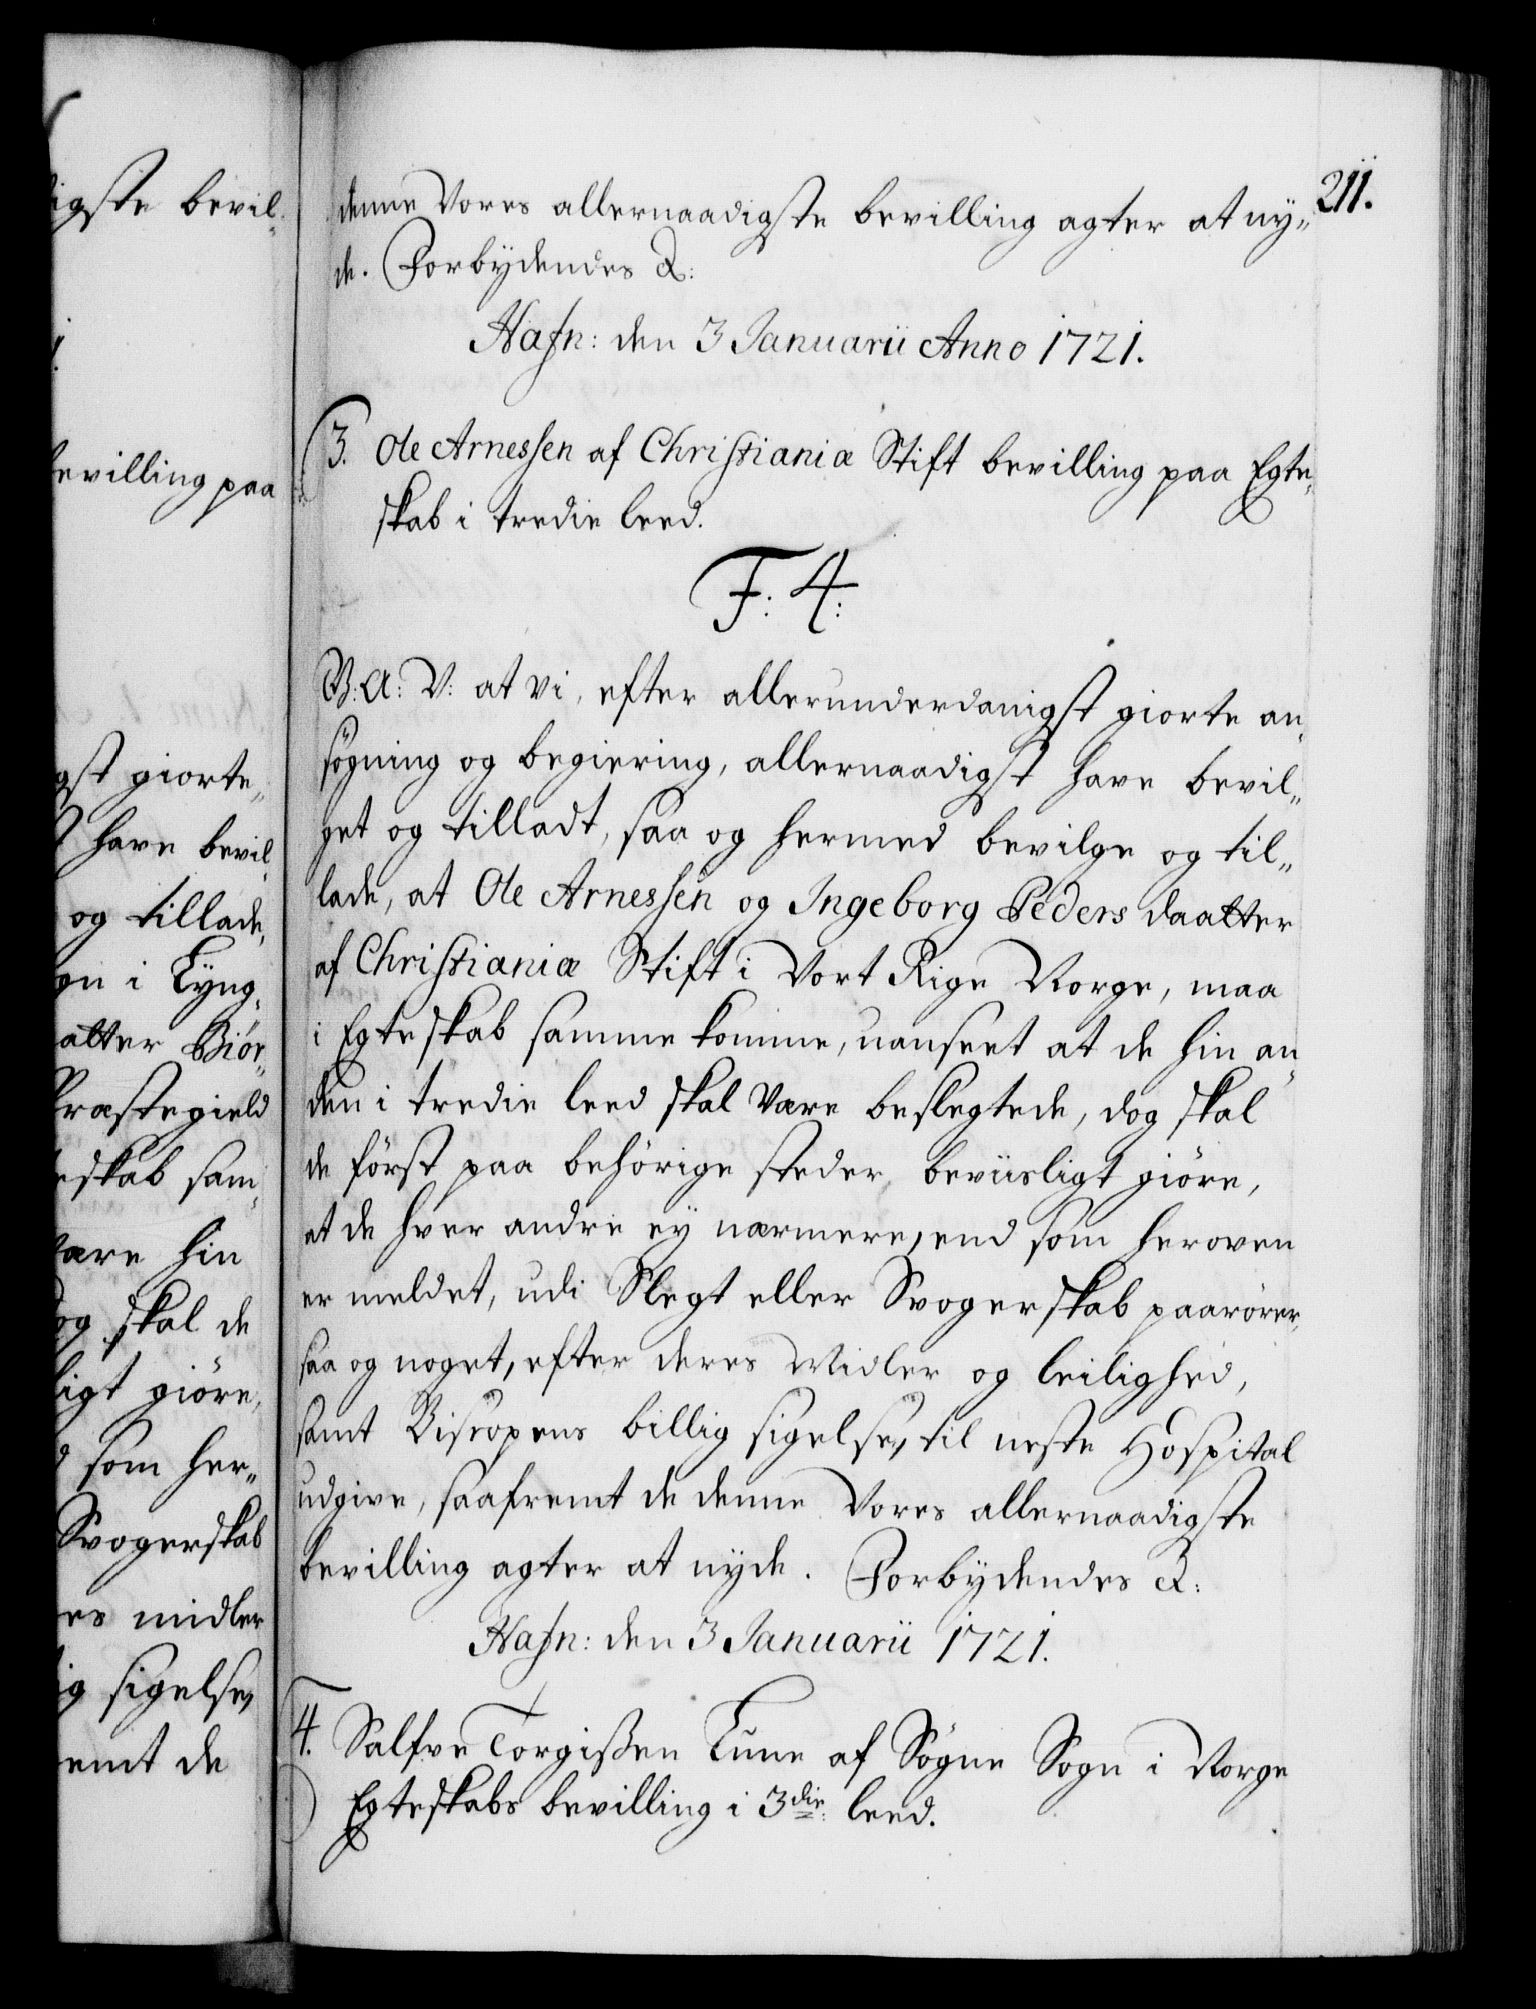 igste bevil„
evilling paa
gst giorte„
have bevil„
og tillade,
gn i Lyng„
atter Biör„
Præstegield
eskab sam„
være hin
og skal de
ligt giöre,
som her„
Svogerskab
es midler
ig sigelse,
emt de
211.
denne Vores allernaadigste bevilling agter at ny„
de. Forbydendes &:
Hafn: den 3 Januarii Anno 1721.
3. Ole Arnessen af Christianiæ Stift bevilling paa Egte„
skab i tredie leed.
F: 4:
V: A: V: at Vi, efter allerunderdanigst giorte an„
søgning og begiering, allernaadigst have bevil„
get og tilladt, saa og hermed bevilge og til„
lade, at Ole Arnessen og Ingeborg Peders daatter
af Christianiæ Stift i Vort Rige Norge, maa
i Egteskab sammekomme, uanseet at de hin an„
den i tredie leed skal være beslegtede, dog skal
de först paa behörige steder, beviisligt giöre,
at de hver andre ey nærmere, end som heroven
er meldet, udi Slegt eller Svogerskab paarörer,
saa og noget, efter deres Midler og leilighed,
samt Biscopens billig sigelse, til neste Hospital
udgive, saafremt de denne Vores allernaadigste
bevilling agter at nyde. Forbydendes &:
Hafn: den 3 Januarii 1721.
4. Salfve Torgißen Lune af Sögne Sogn i Norge
Egteskabs bevilling i 3die leed.